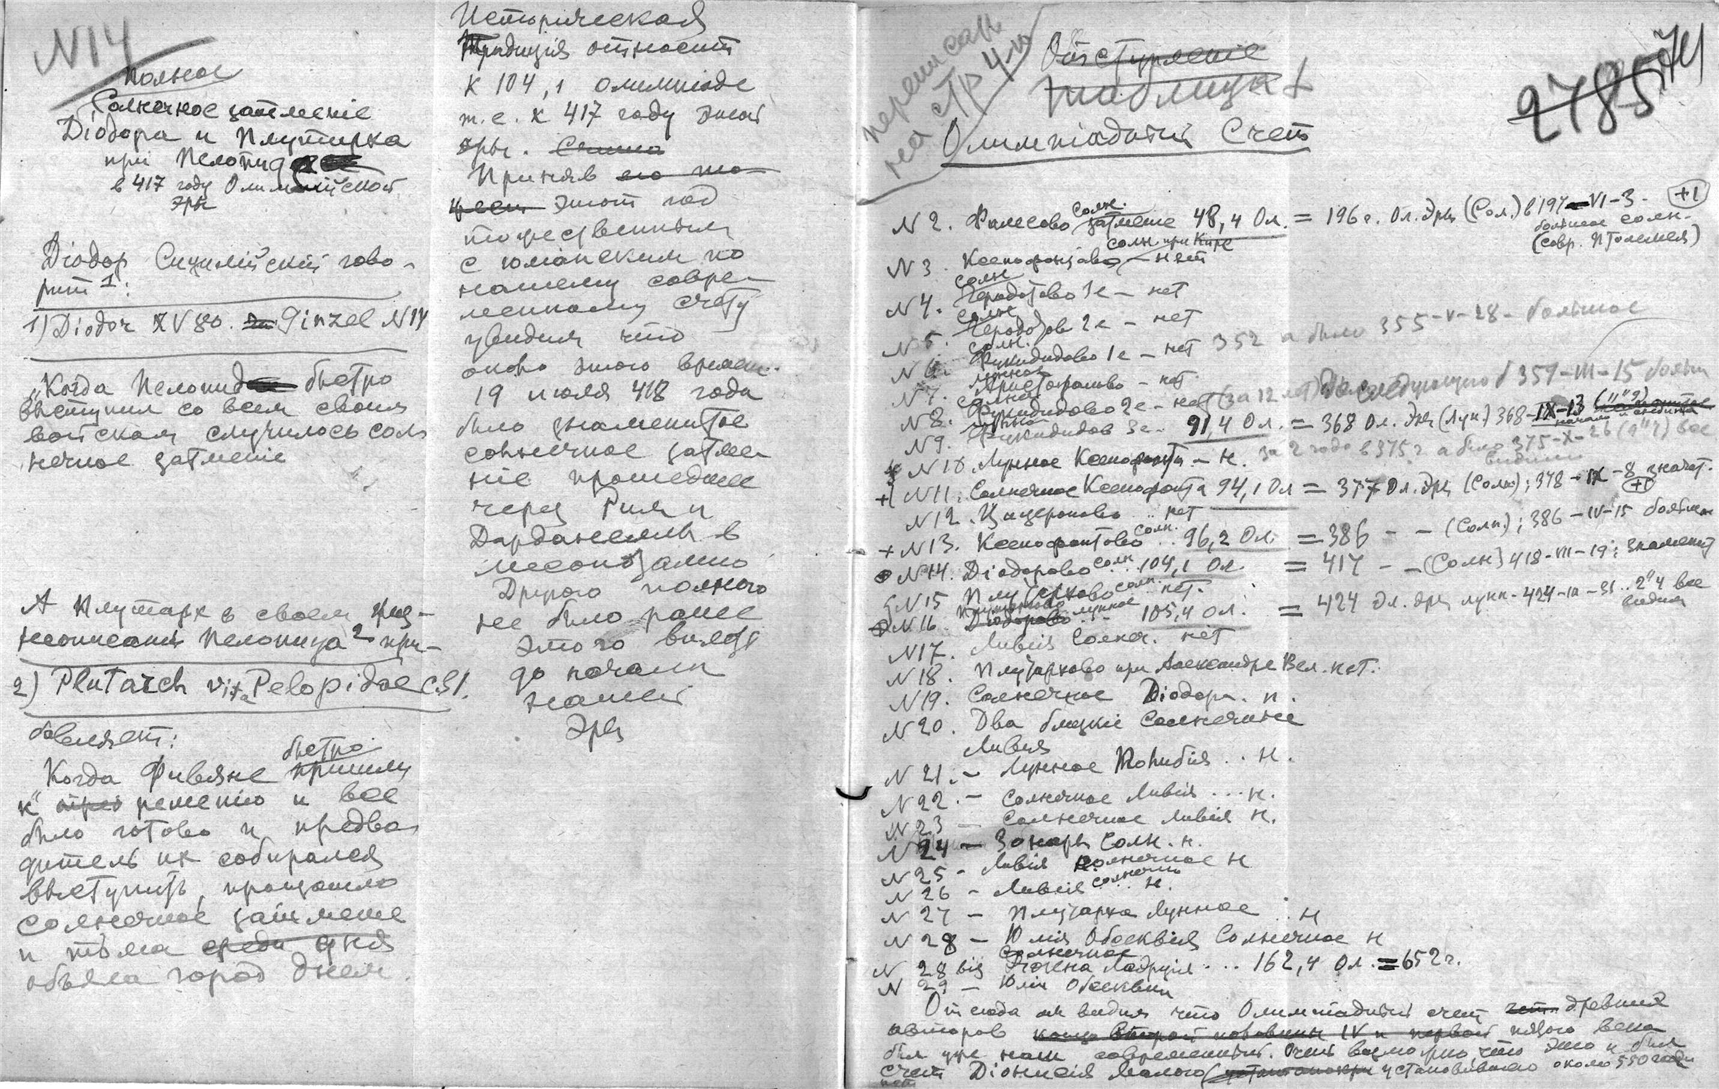 N14
Полное
Солнечное затменіе
Діодора и Плутарка
при Пелопид
в 417 году Олимпійской
эры
Діодор Сицилійскій гово-
рит 1:
1) Diodor XV 80. Ginzel N14
„Когда Пелопид быстро
выступил со всем своим
войском случилось сол-
нечное затменіе
А Плутарх в своем жиз-
неописании Пелопида 2 при-
2) Plutarch vita Pelopidae c.31.
бавляет:
быстро
Когда Фивяне пришли
к решению и все
было готово и предво
дитель их собирался
выступить, произошло
солнечное затмение
и тьма среди дня
объяла город днем.
Историческая
Традиція относит
к 104,1 олимпіаде
т.е. к 417 году этой
эры.
Приняв
этот год
тождественным
с юлианским по
нашему совре-
менному счету
увидим что
около этого времени
19 июля 418 года
было знаменитое
солнечное затме-
ніе прошедшее
через Рим и
Дарданеллы в
Месопотамию
Другого полного
не было ранее
этого вплоть
до начала
нашей
эры
переписать
на стр 4ю
Отступленіе
таблица 1
Олимпіадный Счет
2785
N 2. Фалесово солн. затмение 48,4 Ол. = 196 г. Ол. Эры (Сол.) в 197-VI-3. +1
большое солн.
(совр. Птолемея)
солн. при Кире
N 3. Ксенофонтово - нет
солн
N 4. Геродотово 1е - нет
солн
N 5. Геродотово 2е - нет
солн.
N 6. Фукидидово 1е - нет 352 а было 355-V-28 - большое
N 7. Аристофаново - нет
N 8. Фукидидово 2е - нет (за 12 лет) до следующего б 359-III-15 больш
N 9. Фукидидов 3е - 91,4 Ол. = 368 Ол. Эры (Лун) 368-IX-13
N 10. Лунное Ксенофонта - н. за 2 года в 375 г а было 375-X-26
+ N 11. Солнечное Ксенофонта 94,1 Ол = 377 Ол. Эры (Солн); 378-IX-8 значит. +1
N 12. Цицероново .. нет
+ N 13. Ксенофонтово солн. .. 96,2 Ол. = 386 - - (Солн); 386-IV-15 большое
N 14. Діодорово солн ... 104,1 Ол. = 417 - - (Солн) 418-VII-19; знаменит
N 15 Плутархово солн. .. нет.
N 16. Плутархово лунное ... 105,4 Ол. = 424 Ол. эры лунн
N 17. Ливія Солнеч. нет
N 18. Плутархово при Александре Вел. нет.
N 19. Солнечное Діодора. н.
N 20. Два близкіе Солнечные
Ливия
N 21. - Лунное Полибія .. н.
N 22. - Солнечное Ливія ... н.
N 23 - Солнечное Ливія н.
N 24 - Зонары Солн. н.
N 25 - Ливія солнечное н
N 26 - Ливія солнечн .. н.
N 27 - Плутарха Лунное .. н
N 28 - Юлія Обсеквія Солнечное н
N 28 bis Солнечное ... 162,4 Ол. = 652 г.
N 29 - Юлія Обсеквия
Отсюда мы видим что Олимпіадный счет древних
авторов конца второй половины IV и первой пятого века
был уже наш современный. Очень возможно, что это и был
счет Діонисія Малого установленного около 550 года